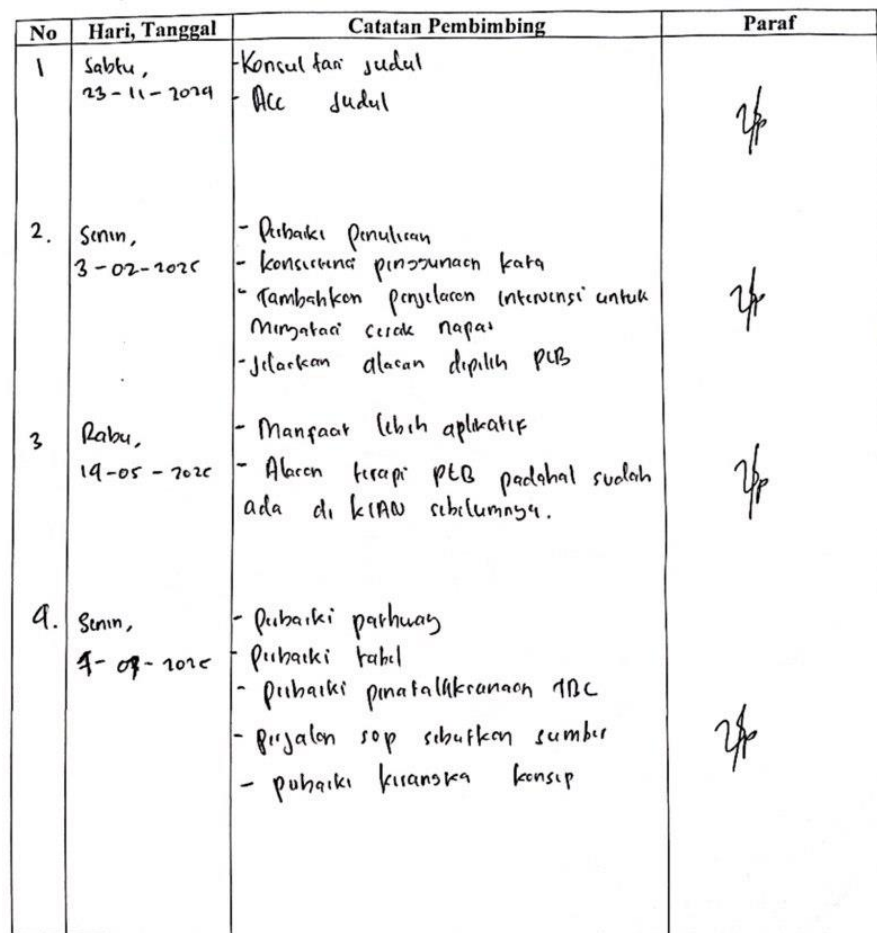 No Hari, Tanggal Catatan Pembimbing Paraf
1 Sabtu, - Konsultasi Judul
23-11-2024 - Acc Judul
2. Senin, - Perbaiki Penulisan
3-02-2025 - konsistensi penggunaan kata
- Tambahkan penjelasan intervensi untuk
Mengatasi sesak napas
- Jelaskan alasan dipilih PLB
3 Rabu, - Manfaat lebih aplikatif
- Alasan terapi PLB padahal sudah
ada di KIAN sebelumnya.
4. Senin, - Perbaiki pathway
- Perbaiki tabel
- perbaiki penatalaksanaan TBC
- sop sebutkan sumber
- perbaiki kerangka konsep